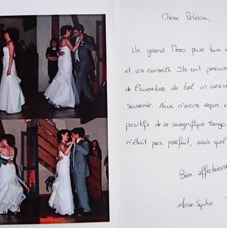 Chère Patricia,
Un grand Merci pour tous v
et vos conseils. Ils ont permis
de l'ouverture de bal un
souvenir. Nous n'avons reçu
positifs de ce magnifique tango
n'était pas parfait, mais quel
Bien affectueuse
Anne-Sophie